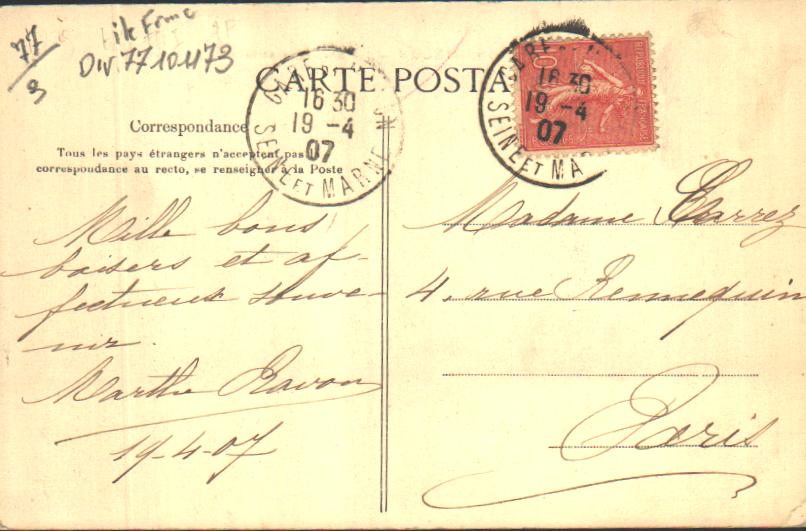 77
3
Div 77101173
CARTE POSTA
Correspondance
Tous les pays étrangers n'acceptent pas
correspondance au recto, se renseigner à la Poste
GARE
16 30
19 - 4
07
SEINE ET MARNE
GARE
16 30
19 - 4
07
SEINE ET MA
Mille bons
baisers et af-
fectueux souve-
nir
Marthe Ravon
19-4-07
Madame
4, rue Rennequin
Paris